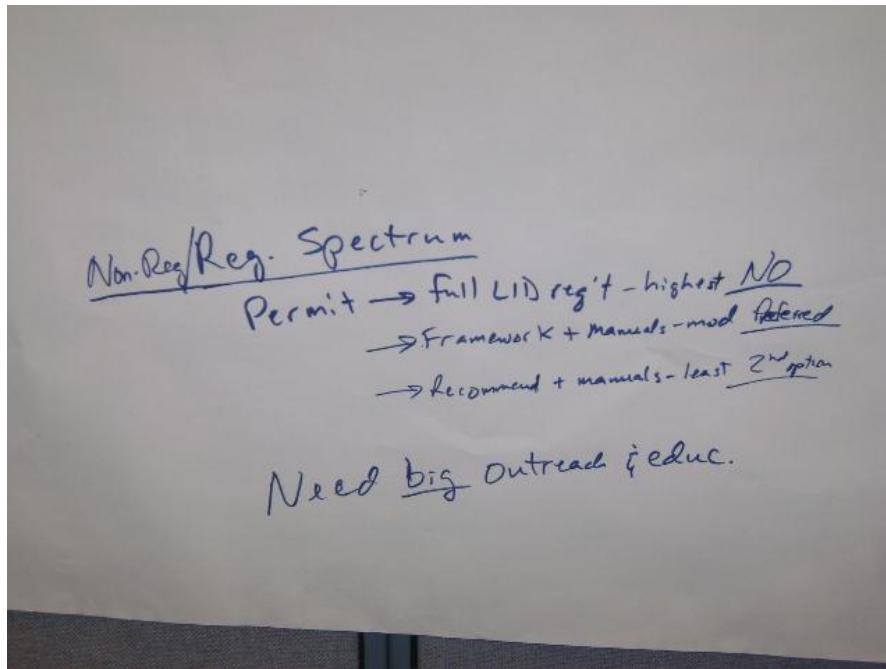 Non-Reg/Reg. Spectrum
Permit → full LID reg't - highest NO
→ Framework + Manuals - mod Preferred
→ Recommend + manuals - least 2nd option
Need big outreach & educ.